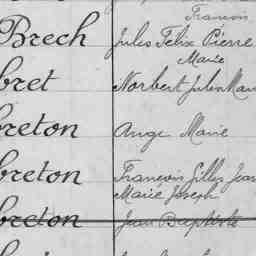 Francis
Brech Jules Felix Pierre
Marie
bret Norbert Julen Mari
breton Ange Marie
breton François Gilles Jean
Marie Joseph
breton Jean Baptiste